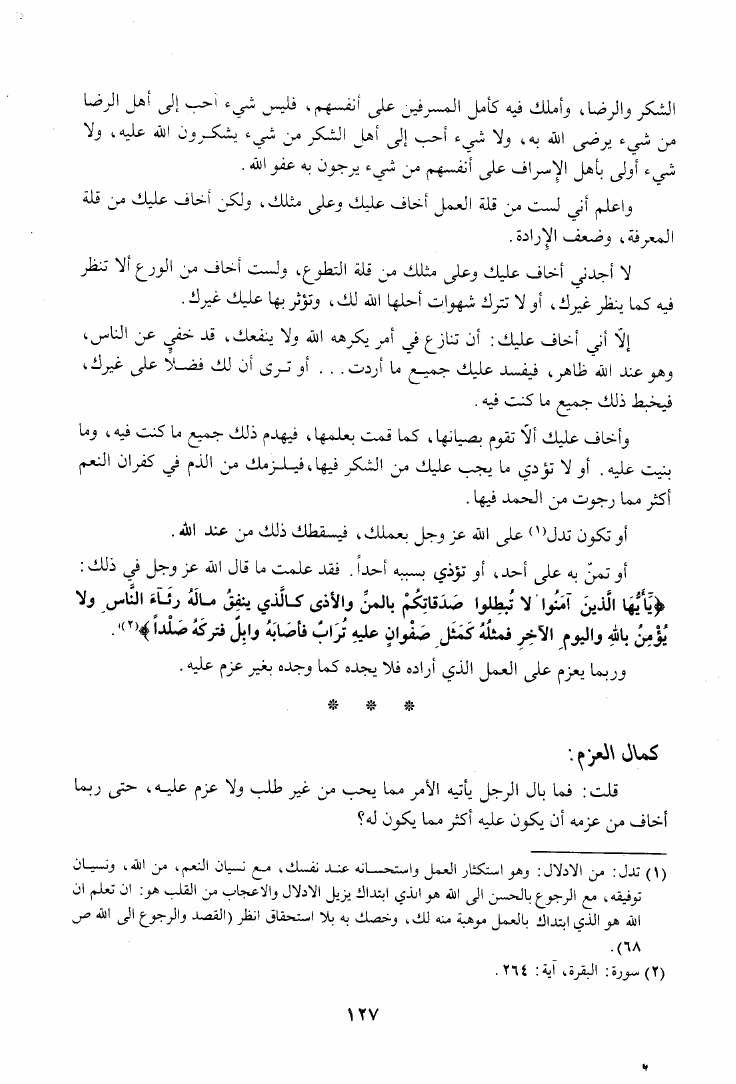 الشكر والرضا، وأملك فيه كأمل المسرفين على أنفسهم، فليس شيء أحب إلى أهل الرضا
من شيء يرضى الله به، ولا شيء أحب إلى أهل الشكر من شيء يشكرون الله عليه، ولا
شيء أولى بأهل الإسراف على أنفسهم من شيء يرجون به عفو الله.
واعلم أني لست من قلة العمل أخاف عليك وعلى مثلك، ولكن أخاف عليك من قلة
المعرفة، وضعف الإرادة.
لا أجدني أخاف عليك وعلى مثلك من قلة التطوع، ولست أخاف من الورع ألا تنظر
فيه كما ينظر غيرك، أو لا تترك شهوات أحلها الله لك، وتؤثر بها عليك غيرك.
إلّا أني أخاف عليك: أن تنازع في أمر يكرهه الله ولا ينفعك، قد خفي عن الناس،
وهو عند الله ظاهر، فيفسد عليك جميع ما أردت... أو ترى أن لك فضلاً على غيرك،
فيخبط ذلك جميع ما كنت فيه.
وأخاف عليك ألّا تقوم بصيانها، كما قمت بعلمها، فيهدم ذلك جميع ما كنت فيه، وما
بنيت عليه. أو لا تؤدي ما يجب عليك من الشكر فيها، فيلزمك من الذم في كفران النعم
أكثر مما رجوت من الحمد فيها.
أو تكون تدل(١) على الله عز وجل بعملك، فيسقطك ذلك من عند الله.
أو تمنّ به على أحد، أو تؤذي بسببه أحداً. فقد علمت ما قال الله عز وجل في ذلك:
﴿يَٰأَيُّهَا الَّذينَ آمَنُوا لا تُبطلوا صَدَقاتِكُمْ بالمنِّ والأذى كالَّذي ينفِقُ مالَهُ رئَآءَ النَّاسِ ولا
يُؤْمِنُ باللهِ واليومِ الآخرِ فمثلُهُ كَمَثَلِ صَفْوانٍ عليهِ تُرَابٌ فأصَابَهُ وابِلٌ فتركَهُ صَلْداً﴾(٢).
وربما يعزم على العمل الذي أراده فلا يجده كما وجده بغير عزم عليه.
* * *
كمال العزم:
قلت: فما بال الرجل يأتيه الأمر مما يحب من غير طلب ولا عزم عليه، حتى ربما
أخاف من عزمه أن يكون عليه أكثر مما يكون له؟
(١) تدل: من الادلال: وهو استكثار العمل واستحسانه عند نفسك، مع نسيان النعم، من الله، ونسيان
توفيقه، مع الرجوع بالحسن الى الله هو الذي ابتداك يزيل الادلال والاعجاب من القلب هو: ان تعلم ان
الله هو الذي ابتداك بالعمل موهبة منه لك، وخصك به بلا استحقاق انظر (القصد والرجوع الى الله ص
٦٨).
(٢) سورة: البقرة، آية: ٢٦٤.
١٢٧